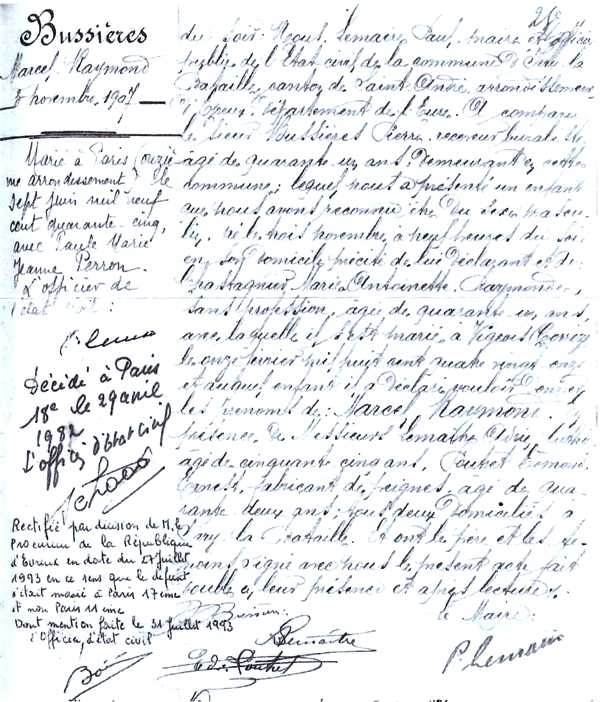 Bussières
Marcel Raymond
3 novembre 1907
Marié à Paris (onziè
me arrondissement) le
sept juin mil neuf
cent quarante-cinq,
avec Paule Marie
Jeanne Perron.
L'officier de
l'état civil :
P. Lemai
Décédé à Paris
18e le 29 avril
1982
L'officier d'état civil
Rectifié par décision de M. le
Procureur de la République
d'Evreux en date du 27 juillet
1993 en ce sens que le défunt
s'était marié à Paris 17 ème
et non Paris 11 ème
Dont mention faite le 31 juillet 1993
l'Officier d'état civil
du soir. Nous, Lemaire Paul, maire et officier
public de l'Etat civil de la commune d'Ivry la
Bataille, canton de Saint André, arrondissement
d'Evreux, département de l'Eure. A comparu
le sieur Bussières Pierre, receveur buraliste,
âgé de quarante un ans demeurant en cette
commune ; lequel nous a présenté un enfant
que nous avons reconnu être du sexe mascu-
lin, né le trois novembre, à neuf heures du soir
en son domicile précité de lui déclarant et de
Chastagnier Marie Antoinette Raymonde,
sans profession, âgée de quarante un ans,
avec laquelle il s'est marié à Vigeois (Corrèze)
le onze février mil huit cent quatre vingt onze
et auquel enfant il a déclaré vouloir donner
les prénoms de : Marcel Raymond. En
présence de Messieurs Lemaitre
âgé de cinquante cinq ans, Pouret Edmond
Ernest, fabricant de peignes, âgé de qua-
rante deux ans ; tous deux domiciliés à
Ivry la Bataille. Et ont le père et les té-
moins signé avec nous le présent acte fait
double en leur présence et après lecture.
Bussières
Le Maire :
Lemaitre
P. Lemaire